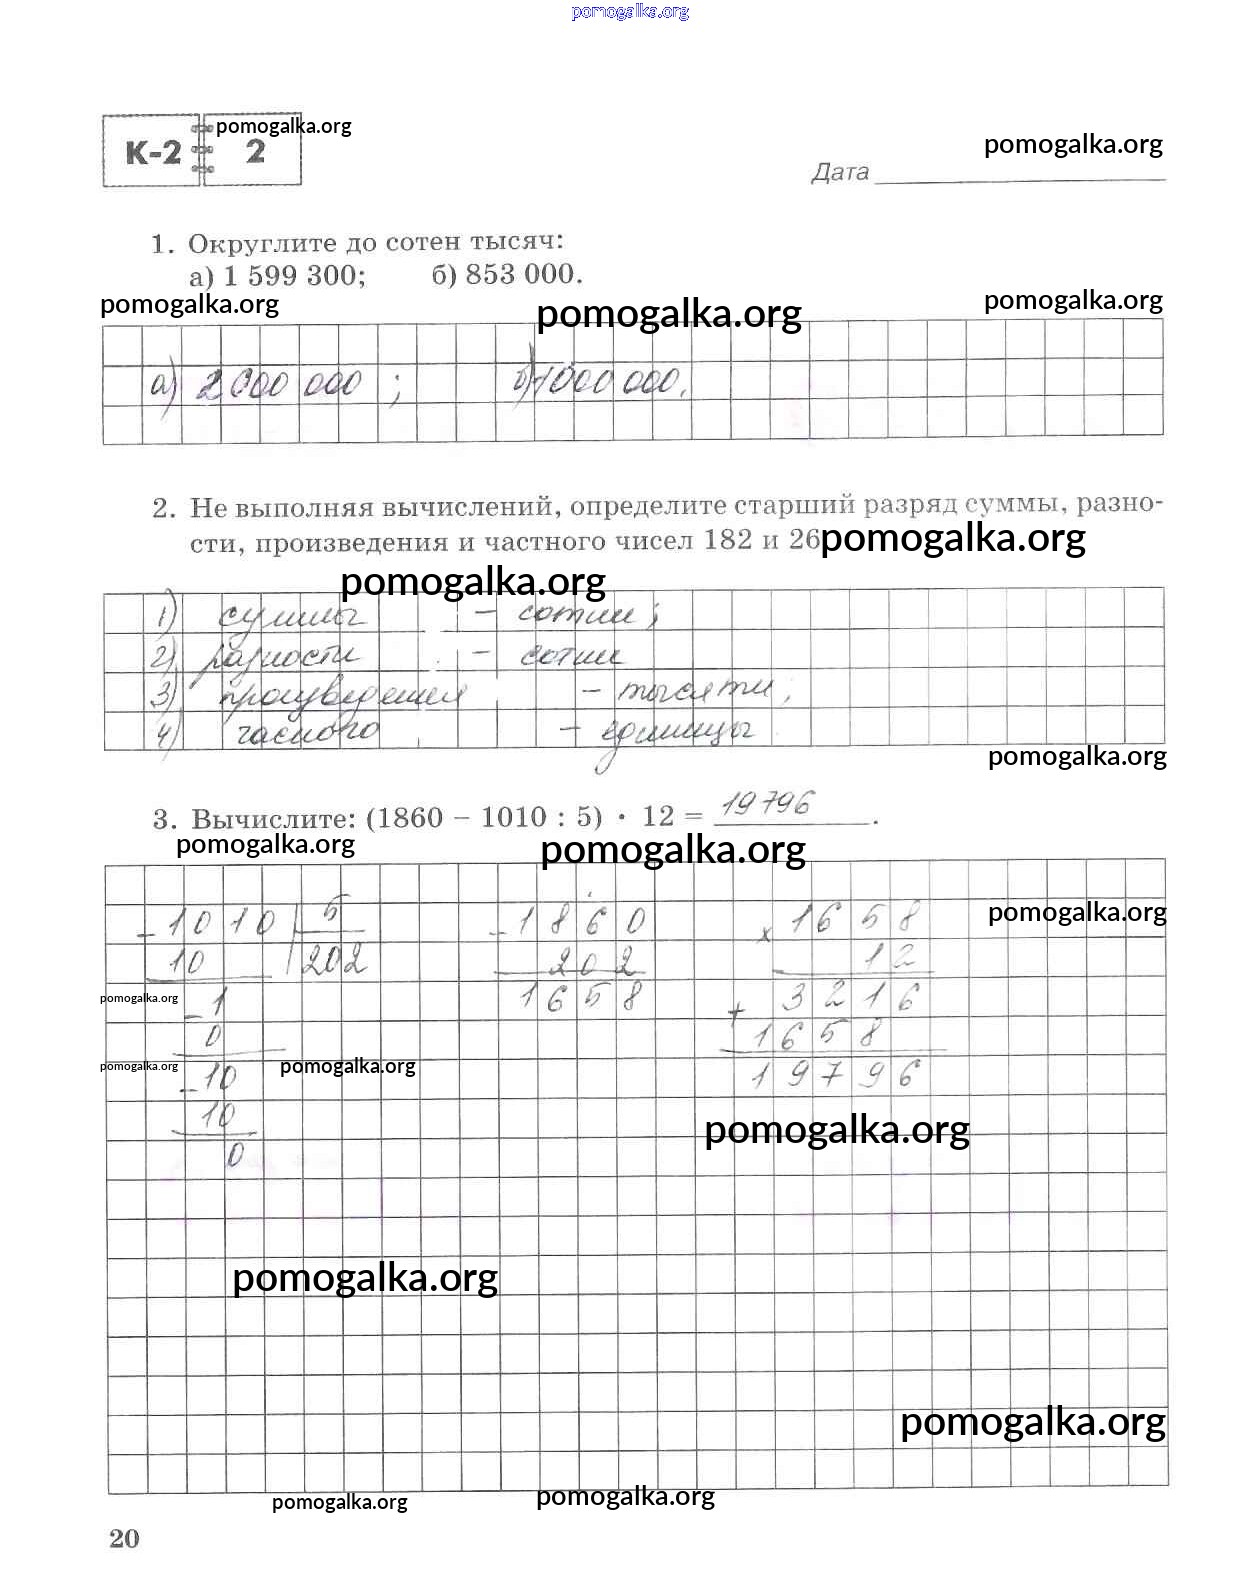 pomogalka.org
К-2 2 pomogalka.org
pomogalka.org
Дата
1. Округлите до сотен тысяч:
а) 1 599 300; б) 853 000.
pomogalka.org pomogalka.org pomogalka.org
а) 2 000 000 ; б) 1 000 000.
2. Не выполняя вычислений, определите старший разряд суммы, разно-
сти, произведения и частного чисел 182 и 26
pomogalka.org
pomogalka.org
1) суммы - сотни ;
2) разности - сотни
3) произведения - тысячи ;
4) часного - единицы
pomogalka.org
3. Вычислите: (1860 – 1010 : 5) · 12 = 19 796.
pomogalka.org pomogalka.org
- 1010 5 - 1860 x 1658 pomogalka.org
10 202 202 12
pomogalka.org - 1 1658 + 3216
0 1658
pomogalka.org - 10 pomogalka.org 19796
10
pomogalka.org
0
pomogalka.org
pomogalka.org
pomogalka.org pomogalka.org
20